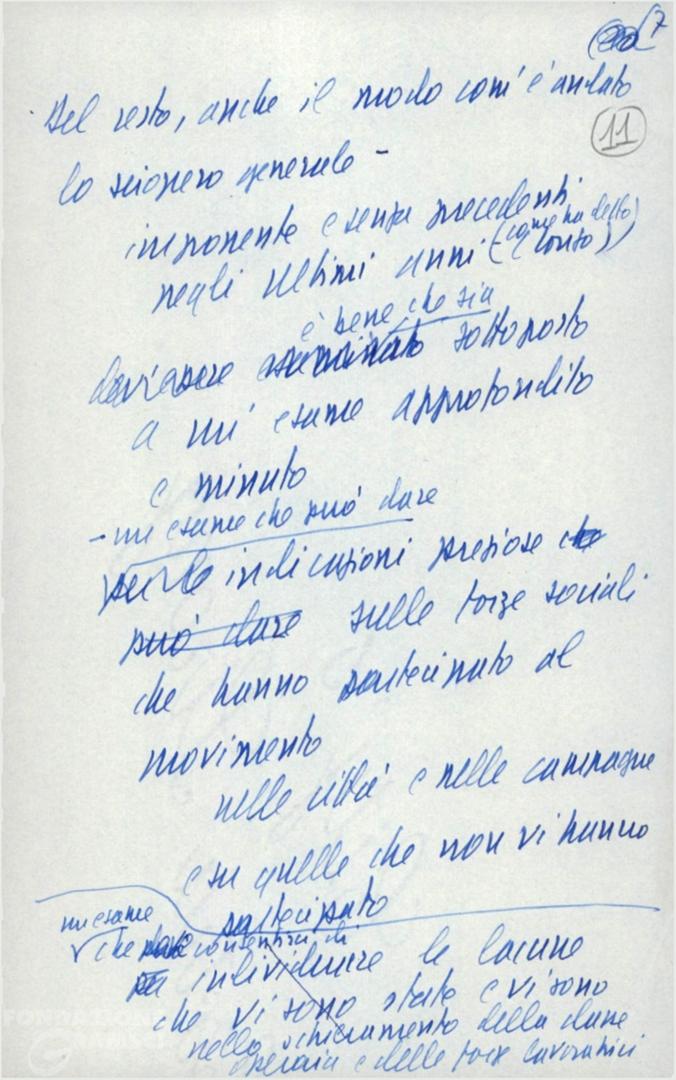 7
11
Del resto, anche il modo com'è andato
lo sciopero generale -
imponente e senza precedenti
negli ultimi anni (come ha detto
Longo)
è bene che sia
dev'essere esaminato sottoposto
a un' esame approfondito
e minuto
- un esame che può dare
per le indicazioni preziose che
può dare sulle forze sociali
che hanno partecipato al
movimento
nelle città e nelle campagne
e su quelle che non vi hanno
partecipato
un esame
che consentirà di
individuare le lacune
che vi sono state e vi sono
nello schieramento della classe
operaia e delle forze lavoratrici
FONDAZIONE
GRAMSCI